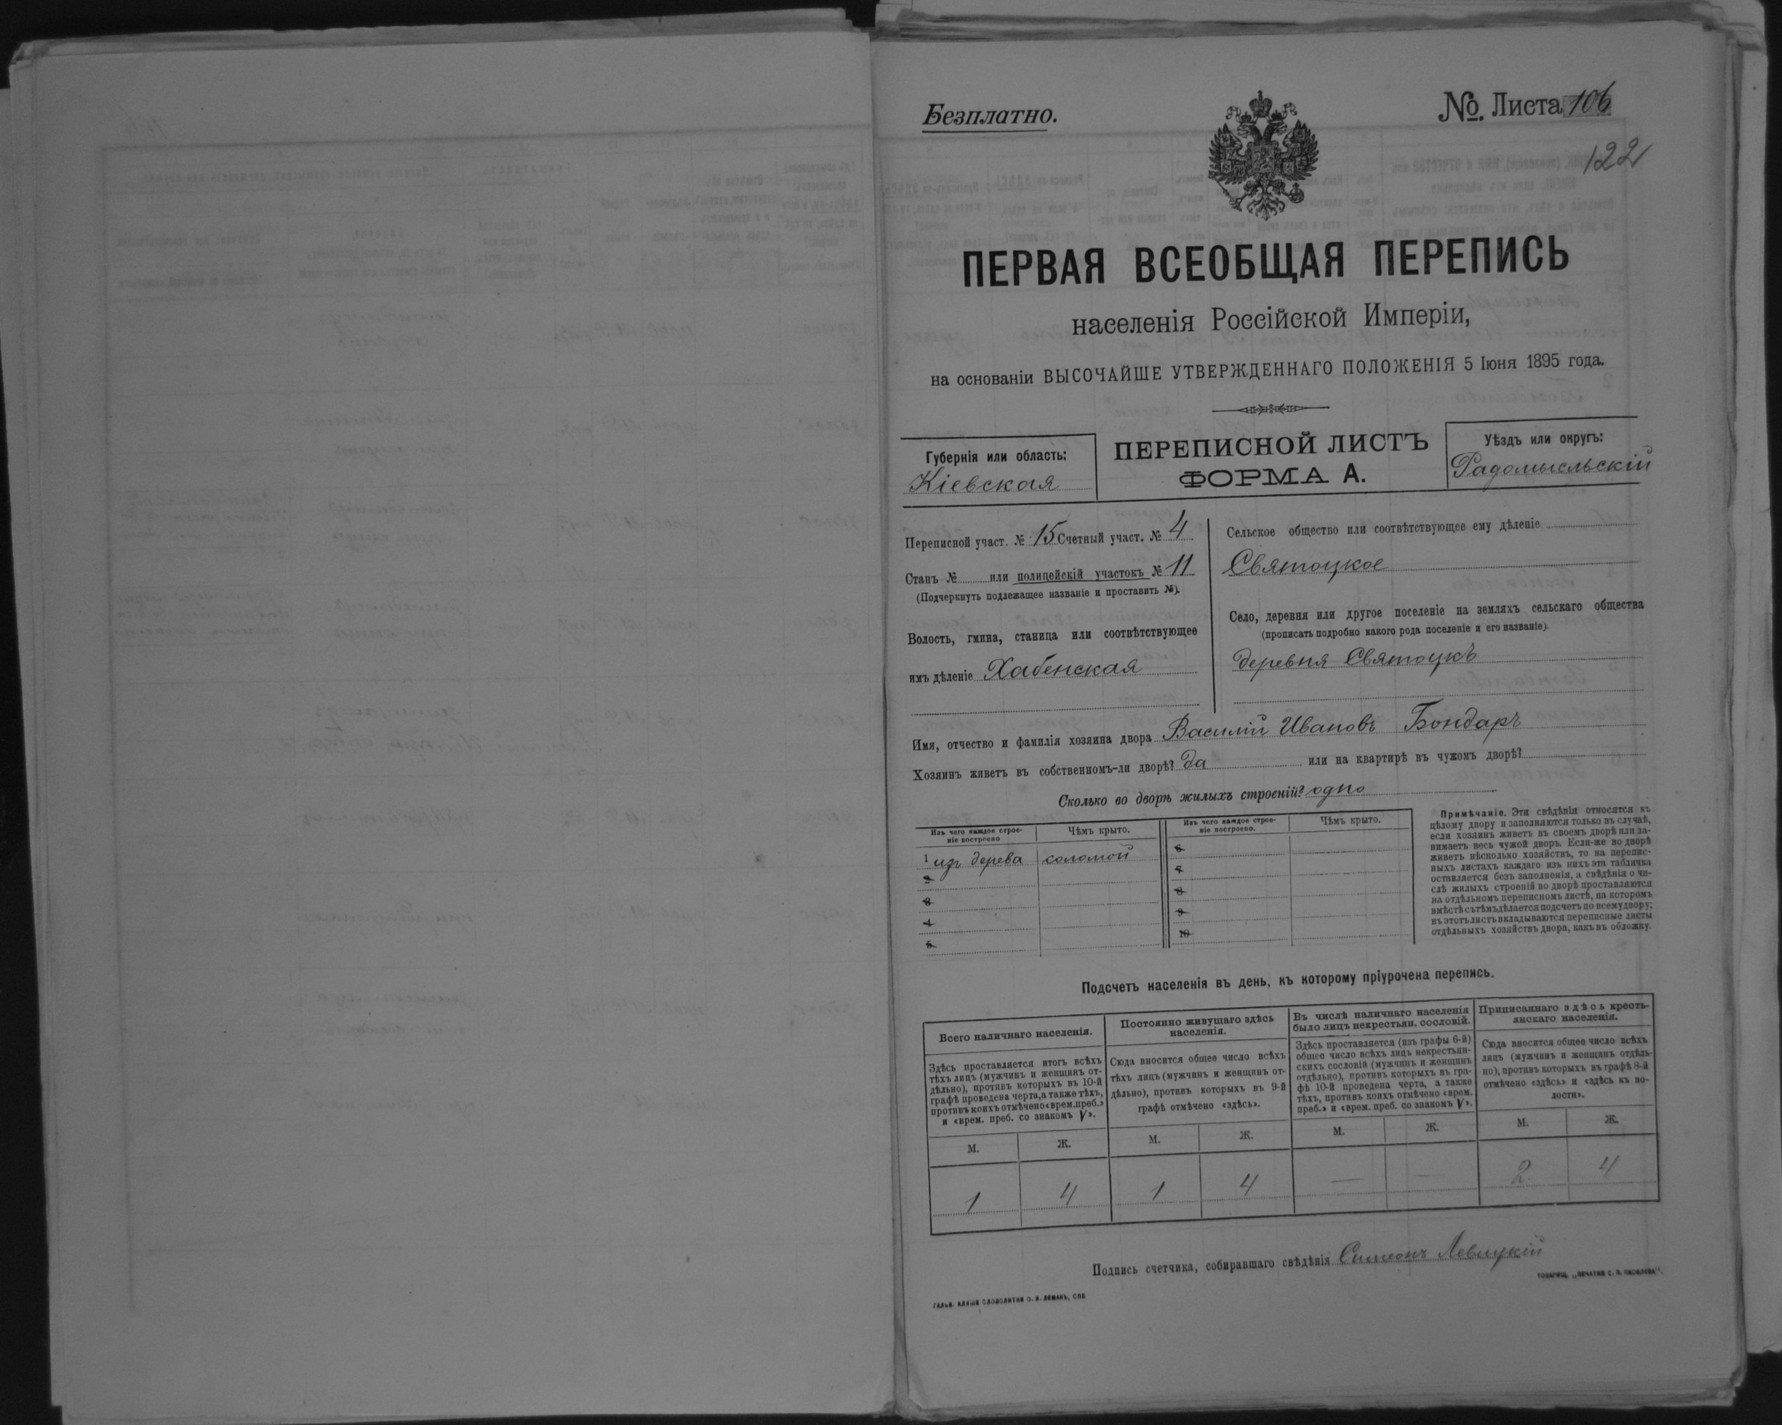 Безплатно.
№. Листа 106
122
ПЕРВАЯ ВСЕОБЩАЯ ПЕРЕПИСЬ
населенія Россійской Имперіи,
на основаніи ВЫСОЧАЙШЕ УТВЕРЖДЕННАГО ПОЛОЖЕНІЯ 5 Іюня 1895 года.
Губернія или область:
Кіевская
ПЕРЕПИСНОЙ ЛИСТЪ
ФОРМА А.
Уѣздъ или округъ:
Радомысльскій
Переписной участ. № 15 Счетный участ. № 4
Станъ № или полицейскій участокъ № 11
(Подчеркнуть подлежащее названіе и проставить №).
Волость, гмина, станица или соотвѣтствующее
имъ дѣленіе Хабенская
Сельское общество или соотвѣтствующее ему дѣленіе
Святоцкое
Село, деревня или другое поселеніе на земляхъ сельскаго общества
(прописать подробно какого рода поселеніе и его названіе).
деревня Святоцкъ
Имя, отчество и фамилія хозяина двора Василій Ивановъ Бондарь
Хозяинъ живетъ въ собственномъ-ли дворѣ? да или на квартирѣ въ чужомъ дворѣ?
Сколько во дворѣ жилыхъ строеній? одно
Изъ чего каждое строе-
ніе построено
Чѣмъ крыто.
1 изъ дерева соломой
2
3
4
5
Изъ чего каждое строе-
ніе построено.
Чѣмъ крыто.
6
7
8
9
10
Примѣчаніе. Эти свѣдѣнія относятся къ
цѣлому двору и заполняются только въ случаѣ,
если хозяинъ живетъ въ своемъ дворѣ или за-
нимаетъ весь чужой дворъ. Если-же во дворѣ
живетъ нѣсколько хозяйствъ, то на перепис-
ныхъ листахъ каждаго изъ нихъ эта табличка
оставляется безъ заполненія, а свѣдѣнія о чи-
слѣ жилыхъ строеній во дворѣ проставляются
на отдѣльномъ переписномъ листѣ, на которомъ
вмѣстѣ съ тѣмъ дѣлается подсчетъ по всему двору;
въ этотъ листъ вкладываются переписные листы
отдѣльныхъ хозяйствъ двора, какъ въ обложку.
Подсчетъ населенія въ день, къ которому пріурочена перепись.
Всего наличнаго населенія.
Здѣсь проставляется итогъ всѣхъ
тѣхъ лицъ (мужчинъ и женщинъ от-
дѣльно), противъ которыхъ въ 10-й
графѣ проведена черта, а также тѣхъ,
противъ коихъ отмѣчено «врем. преб.»
и «врем. преб. со знакомъ V».
М. Ж.
1 4
Постоянно живущаго здѣсь
населенія.
Сюда вносится общее число всѣхъ
тѣхъ лицъ (мужчинъ и женщинъ от-
дѣльно), противъ которыхъ въ 9-й
графѣ отмѣчено «здѣсь».
М. Ж.
1 4
Въ числѣ наличнаго населенія
было лицъ некрестьян. сословій.
Здѣсь проставляется (изъ графы 6-й)
общее число всѣхъ лицъ некрестьян-
скихъ сословій (мужчинъ и женщинъ
отдѣльно), противъ которыхъ въ гра-
фѣ 10-й проведена черта, а также
тѣхъ, противъ коихъ отмѣчено «врем.
преб.» и «врем. преб. со знакомъ V».
М. Ж.
— —
Приписаннаго здѣсь кресть-
янскаго населенія.
Сюда вносится общее число всѣхъ
лицъ (мужчинъ и женщинъ отдѣль-
но), противъ которыхъ въ графѣ 8-й
отмѣчено «здѣсь» и «здѣсь въ во-
лости».
М. Ж.
2 4
Подпись счетчика, собиравшаго свѣдѣнія Симеонъ Левицкій